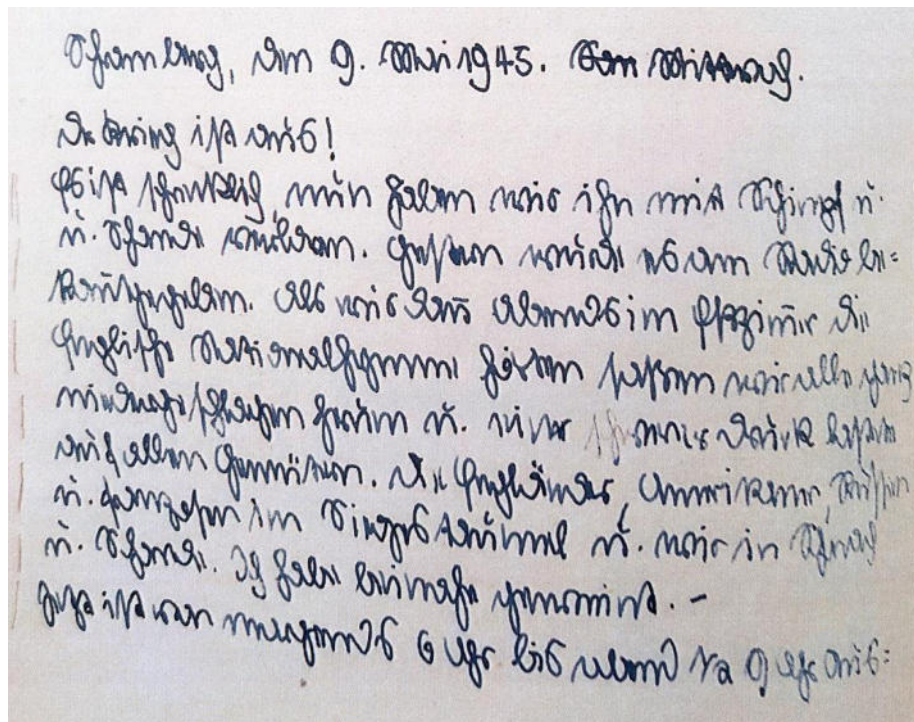 Schaumburg, den 9. Mai 1945. Am Mittwoch.
Der Krieg ist aus!
Es ist schrecklich, nun haben wir ihn mit Schimpf u.
u. Schande verloren. Gestern wurde es am Radio be=
kanntgegeben. Als wir dann abends im Eßzimmer die
Englische Nationalhymne hörten saßen wir alle ganz
niedergeschlagen herum u. ein schwerer Druck lastete
auf allen Gemütern. Die Engländer, Amerikaner, Russen
u. Franzosen im Siegestaumel u. wir in Schmach
u. Schande. Ich habe beinahe geweint. –
Jetzt ist von morgends 6 Uhr bis abends 1/2 9 Uhr Aus=